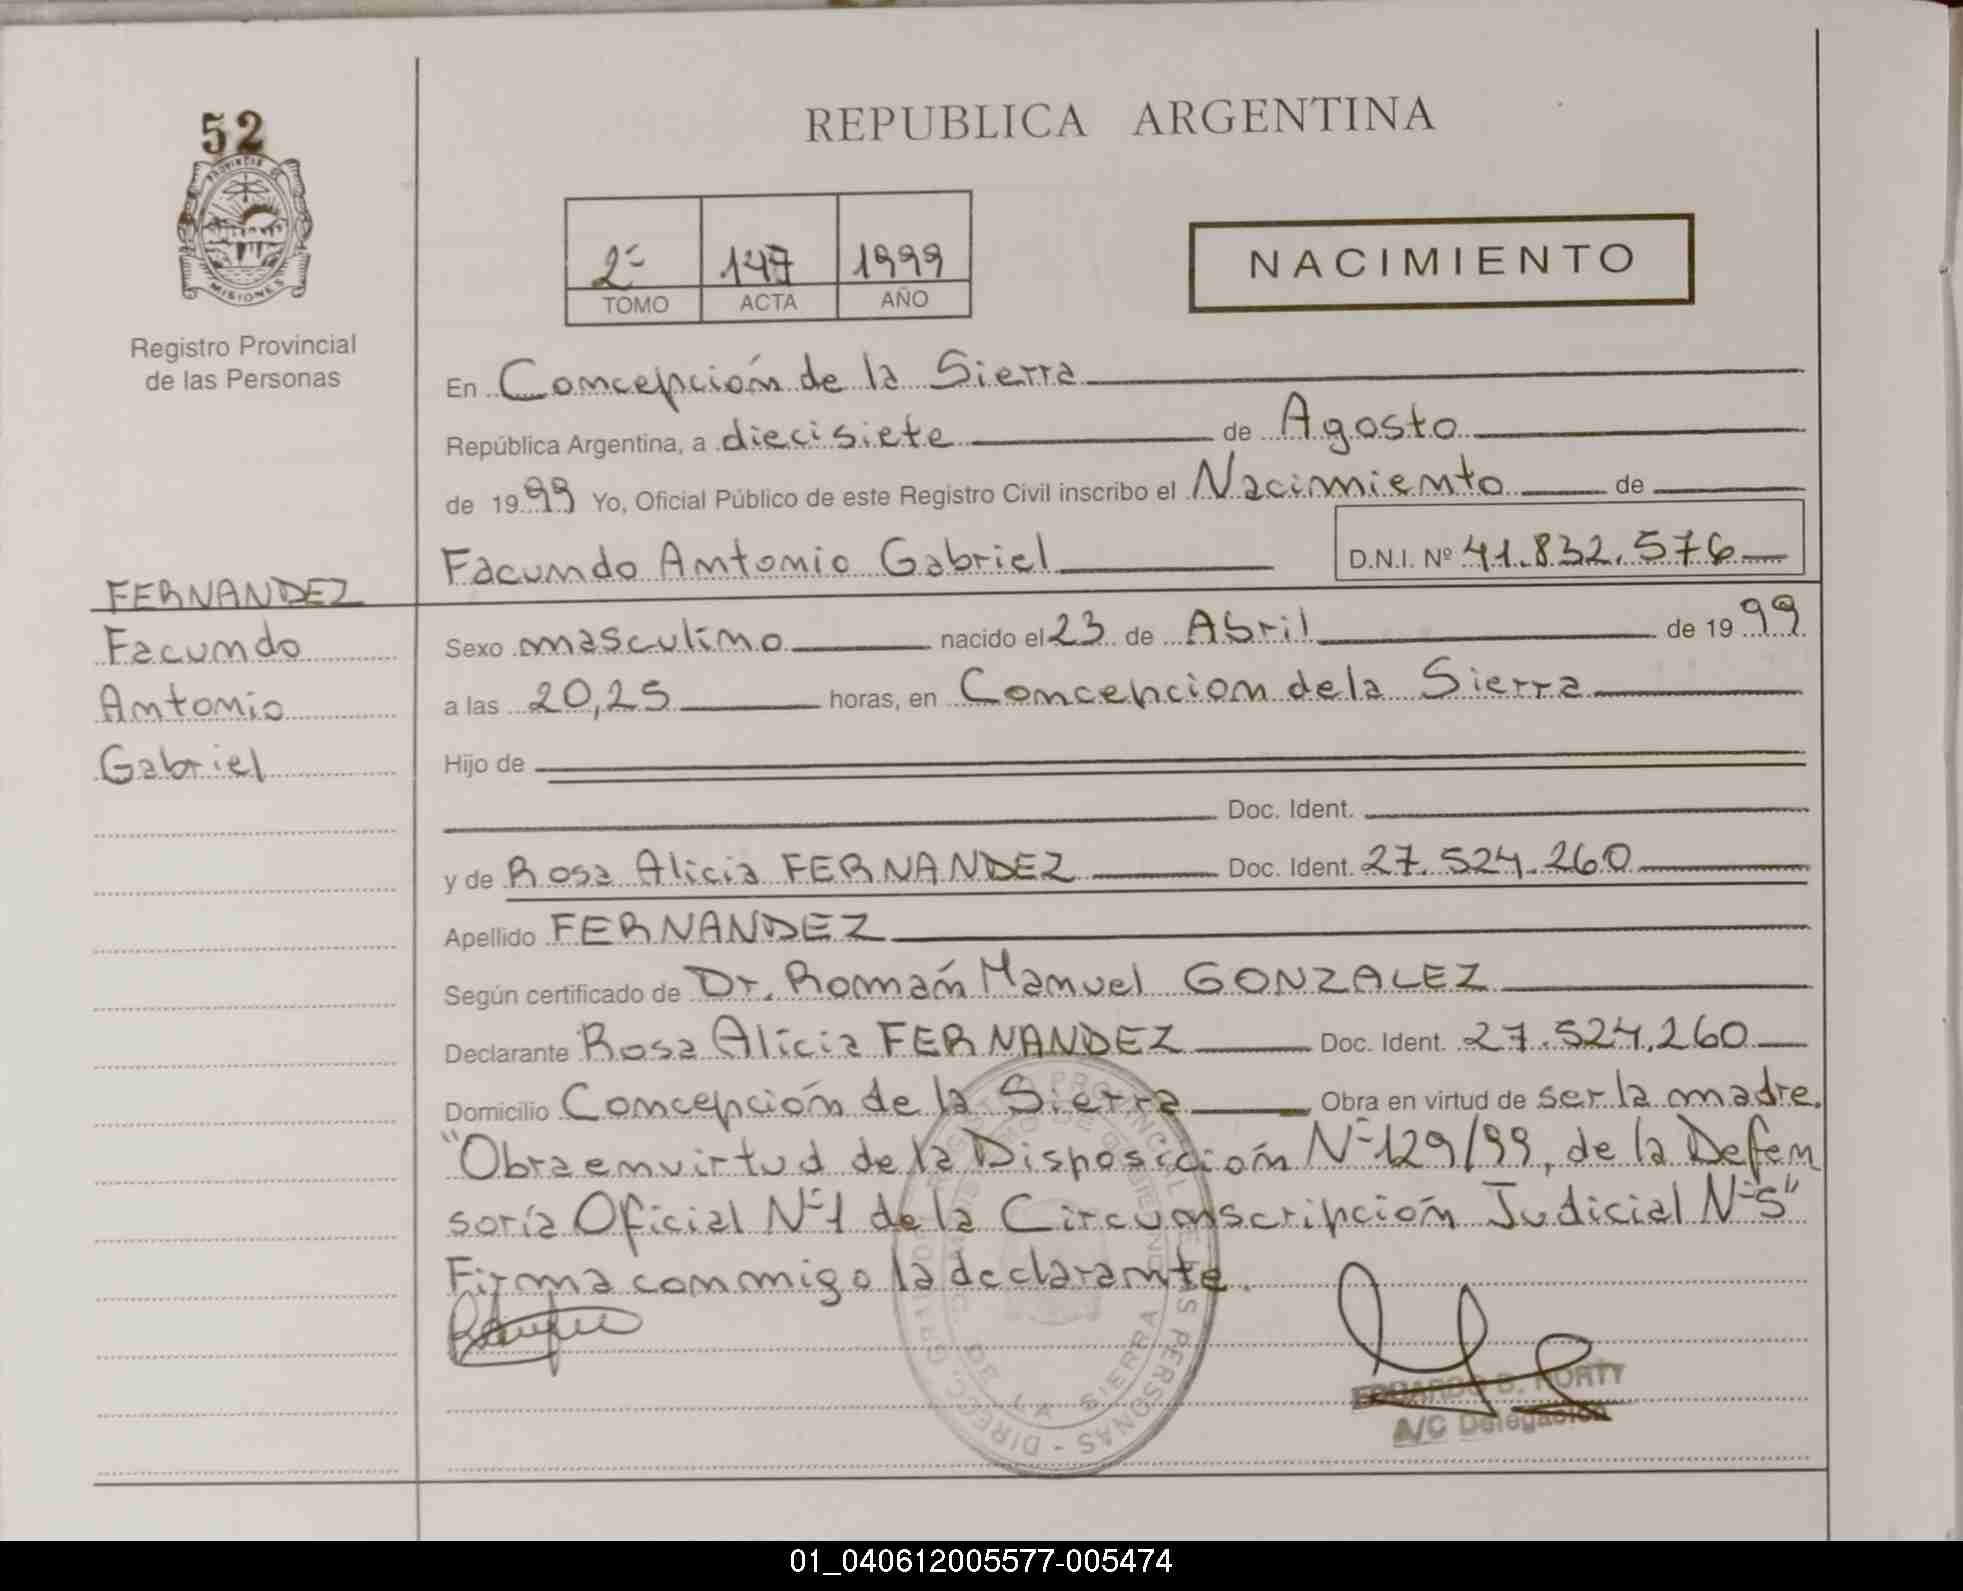 REPUBLICA ARGENTINA
52
PROVINCIA DE
MISIONES
Registro Provincial
de las Personas
2º 147 1999
TOMO ACTA AÑO
NACIMIENTO
En Concepción de la Sierra
República Argentina, a diecisiete de Agosto
de 1999 Yo, Oficial Público de este Registro Civil inscribo el Nacimiento de
Facundo Antonio Gabriel D.N.I. Nº 41.832.576
FERNANDEZ
Facundo
Antonio
Gabriel
Sexo masculino nacido el 23 de Abril de 1999
a las 20,25 horas, en Concepcion de la Sierra
Hijo de
Doc. Ident.
y de Rosa Alicia FERNANDEZ Doc. Ident. 27.524.260
Apellido FERNANDEZ
Según certificado de Dr. Román Manuel GONZALEZ
Declarante Rosa Alicia FERNANDEZ Doc. Ident. 27.524.260
Domicilio Concepción de la Sierra Obra en virtud de ser la madre.
"Obra en virtud de la Disposición Nº 129/99, de la Defen
soría Oficial Nº 1 de la Circunscripción Judicial Nº 5"
Firma conmigo la declarante.
PROVINCIAL DE LAS PERSONAS - DIREC. GRAL. DE
DE LA SIERRA
EDUARDO D. NORTY
A/C Delegación
01_040612005577-005474